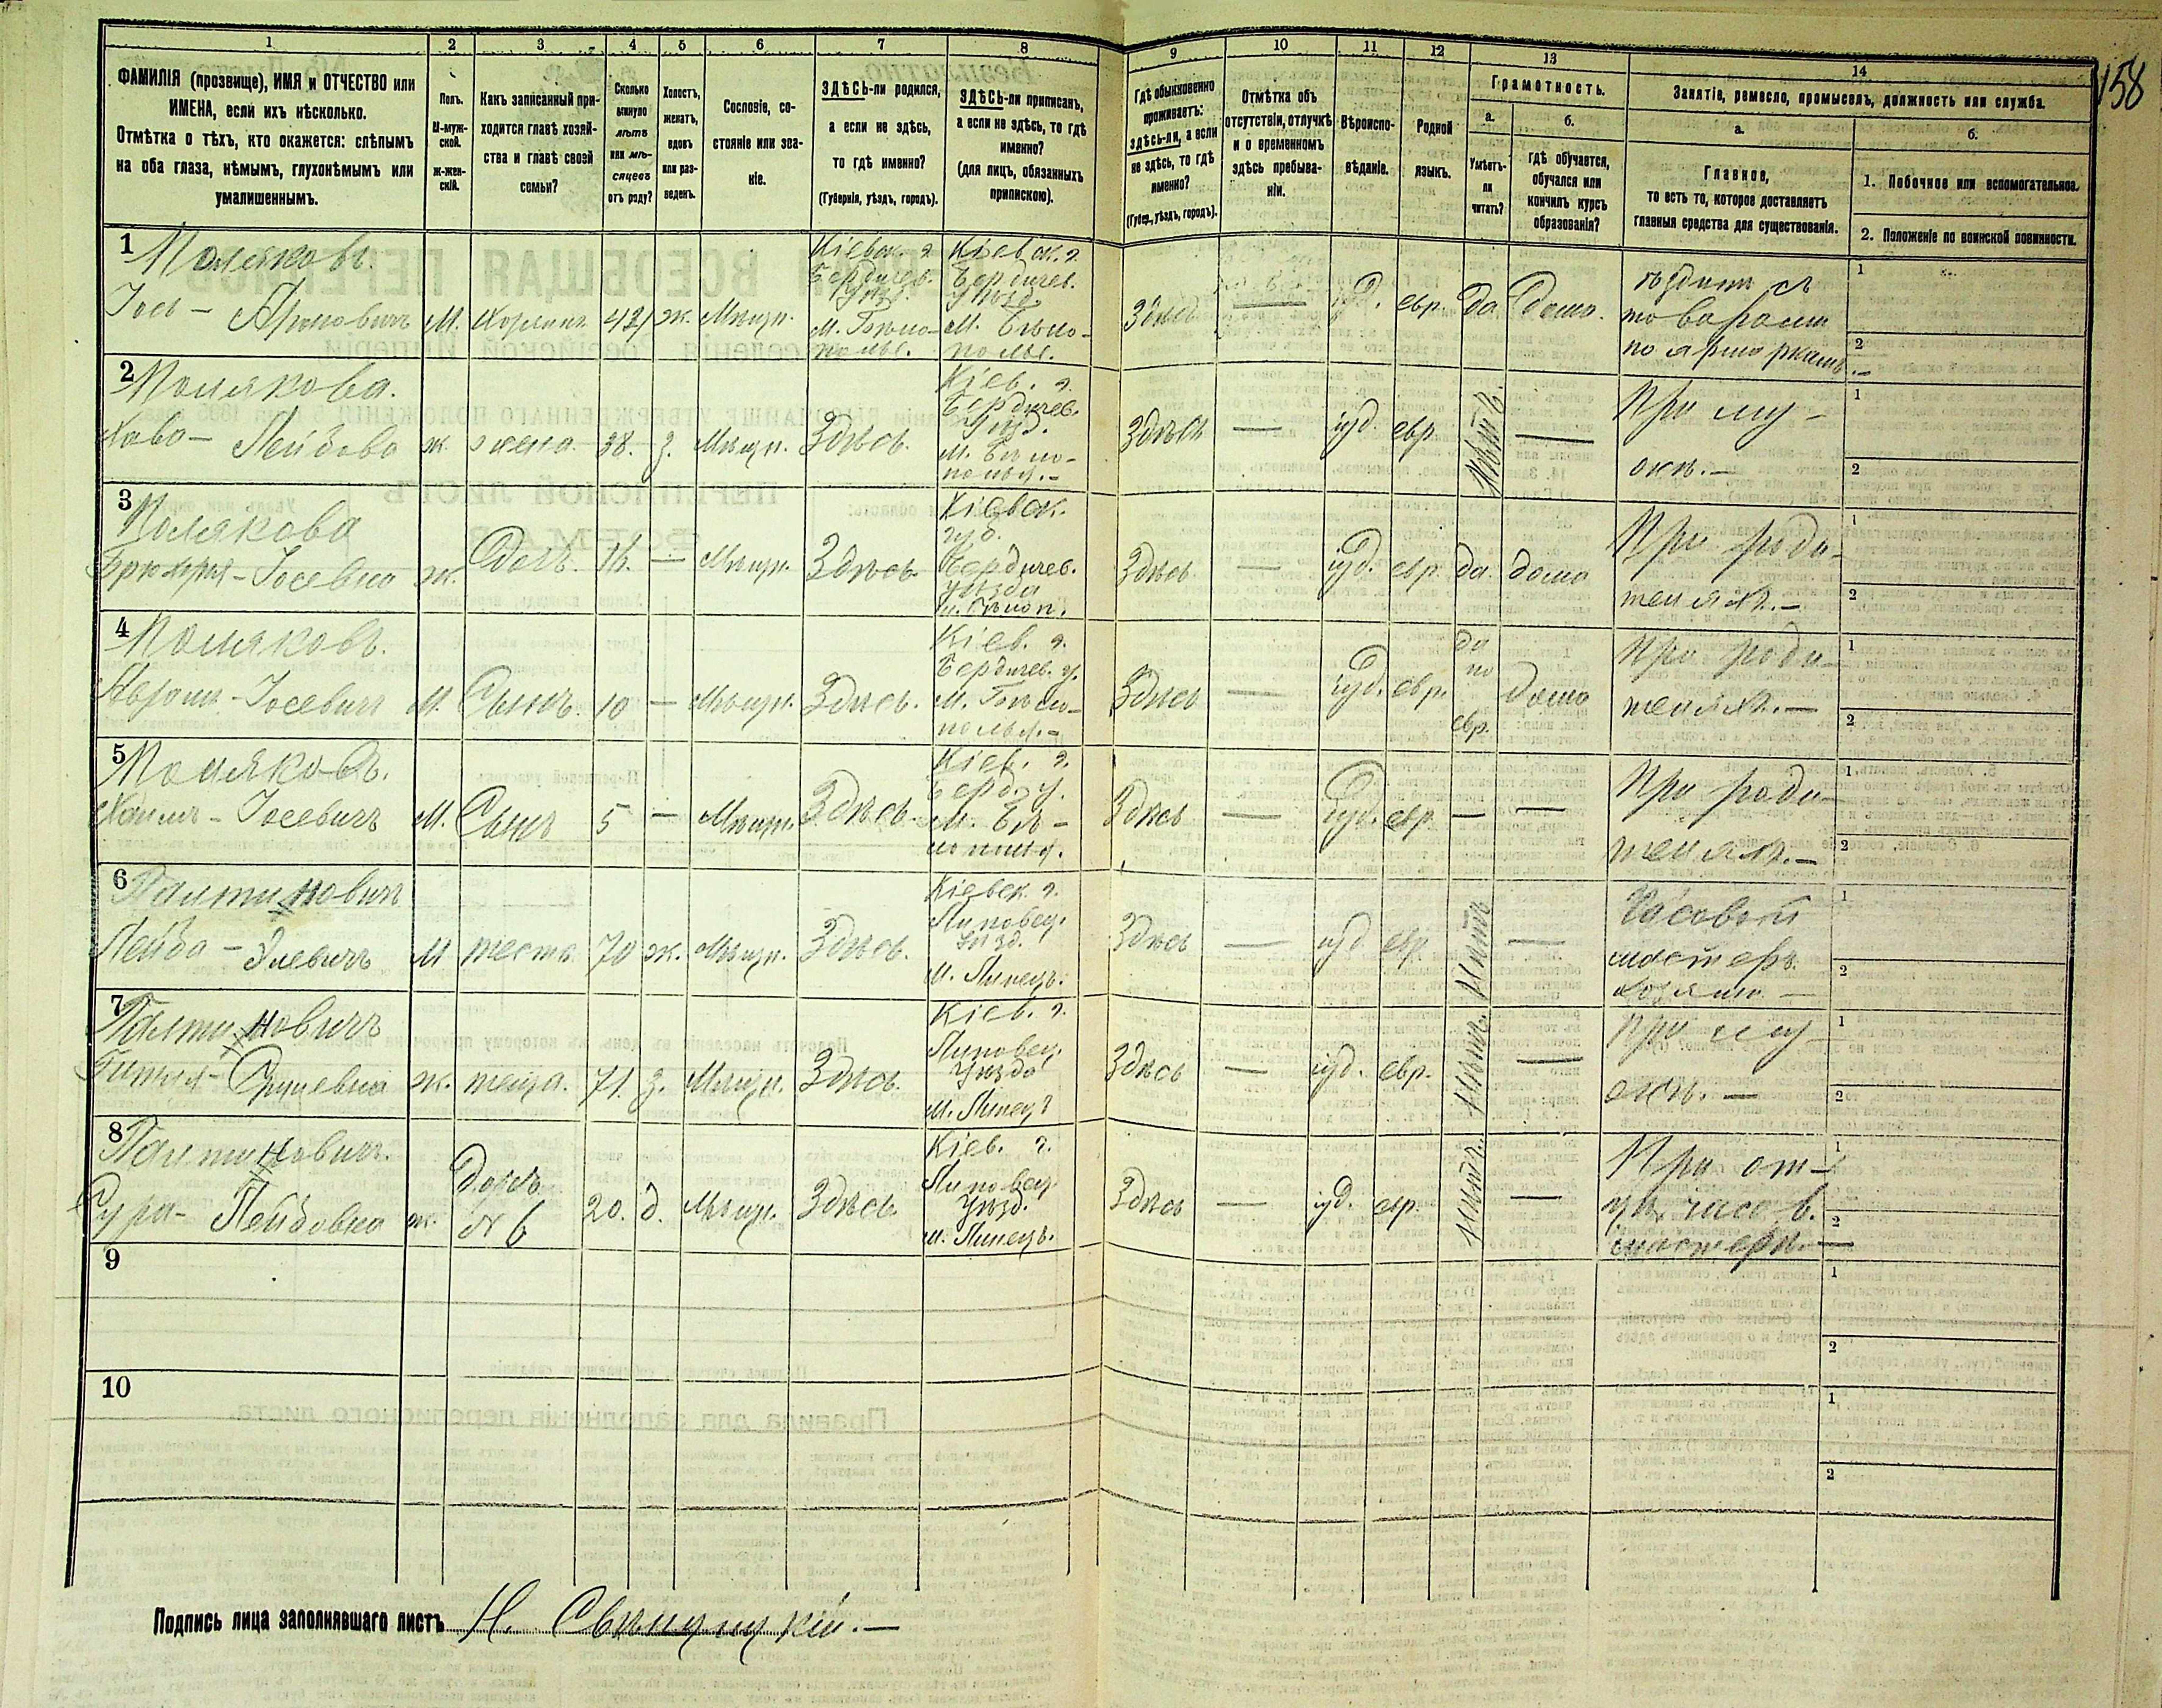 158
1
2
3
4
5
6
7
8
9
10
11
12
13
14
ФАМИЛІЯ (прозвище), ИМЯ и ОТЧЕСТВО или
ИМЕНА, если ихъ нѣсколько.
Отмѣтка о тѣхъ, кто окажется: слѣпымъ
на оба глаза, нѣмымъ, глухонѣмымъ или
умалишеннымъ.
Полъ.
М-муж-
ской.
ж-жен-
скій.
Какъ записанный при-
ходится главѣ хозяй-
ства и главѣ своей
семьи?
Сколько
минуло
лѣтъ
или мѣ-
сяцевъ
отъ роду?
Холостъ,
женатъ,
вдовъ
или раз-
веденъ.
Сословіе, со-
стояніе или зва-
ніе.
ЗДѢСЬ-ли родился,
а если не здѣсь,
то гдѣ именно?
(Губернія, уѣздъ, городъ).
ЗДѢСЬ-ли приписанъ,
а если не здѣсь, то гдѣ
именно?
(для лицъ, обязанныхъ
припискою).
Гдѣ обыкновенно
проживаетъ:
здѣсь-ли, а если
не здѣсь, то гдѣ
именно?
(Губер., уѣздъ, городъ).
Отмѣтка объ
отсутствіи, отлучкѣ
и о временномъ
здѣсь пребыва-
ніи.
Вѣроиспо-
вѣданіе.
Родной
языкъ.
Грамотность.
а.
Умѣетъ-
ли
читать?
б.
гдѣ обучается,
обучался или
кончилъ курсъ
образованія?
Занятіе, ремесло, промыселъ, должность или служба.
а.
Главное,
то есть то, которое доставляетъ
главныя средства для существованія.
б.
1. Побочное или вспомогательное.
2. Положеніе по воинской повинности.
1
Поляковъ.
Іось - Ароновичъ
М. Хозяинъ 42 ж. Мѣщ.
Кіевск. г.
Бердичев.
уѣзд.
м. Бѣло-
полье.
Кіевск. г.
Бердичев.
уѣзд.
м. Бѣло-
полье.
Здѣсь — іуд. евр. да дома.
ѣздитъ съ
товаромъ
по ярмаркамъ.—
2
Полякова.
Хава - Лейбова
ж. жена. 38. з. Мѣщ. Здѣсь.
Кіев. г.
Бердичев.
уѣзд.
м. Бѣло-
полья.—
Здѣсь — іуд. евр. нѣтъ —
При му-
жѣ.—
3
Полякова
Іосевна ж. Дочь. 16. — Мѣщ. Здѣсь
Кіевск.
губ.
Бердичев.
уѣзда
м. Бѣлоп.
Здѣсь — іуд. евр. да. дома
При роди-
теляхъ.—
4
Поляковъ.
Аврумъ - Іосевичъ
М. Сынъ. 10 — Мѣщ. Здѣсь.
Кіев. г.
Бердичев. у.
м. Бѣло-
полья.—
Здѣсь — іуд. евр.
да
по
евр.
дома
При роди-
теляхъ.—
5
Поляковъ.
Хаимъ - Іосевичъ
М. Сынъ 5 — Мѣщ. Здѣсь.
Кіев. г.
Берд. у.
м. Бѣ-
лополья.
Здѣсь — іуд. евр. — —
При роди-
теляхъ.—
6
Палтиновичъ
Лейба - Элевичъ
М тесть 70 ж. Мѣщ. Здѣсь.
Кіевск. г.
Липовец.
уѣзд.
м. Линецъ.
Здѣсь — іуд евр. Нѣтъ —
Часовой
мастеръ.
хозяинъ —
7
Палтиновичъ
Гитля - Сруревна
ж. теща. 71. з. Мѣщ. Здѣсь.
Кіев. г.
Липовец.
уѣзда
м. Линецъ
Здѣсь — іуд. евр. Нѣтъ. —
При му-
жѣ. —
8
Палтиновичъ.
Сура - Лейбовна
ж.
дочь
№ 6
20. д. Мѣщ. Здѣсь.
Кіев. г.
Липовец.
уѣзд.
м. Линецъ.
Здѣсь — іуд. евр. нѣтъ. —
При от-
цѣ часов.
мастерѣ.—
9
10
1
2
Подпись лица заполнявшаго листъ Н. Свѣнцицкій.—